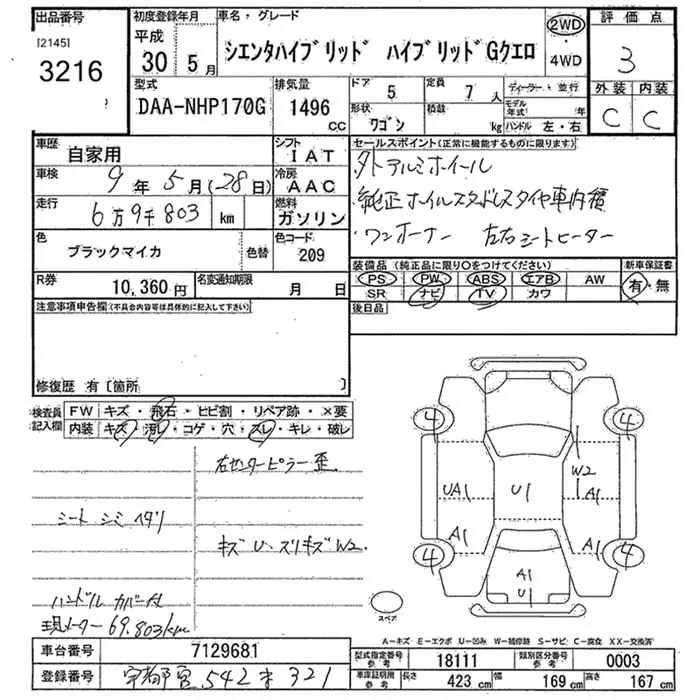 出品番号
[2145]
3216
初度登録年月
平成
30 5月
車名・グレード
シエンタハイブリッド ハイブリッドGクエロ
2WD
4WD
評価点
3
外装 内装
C C
型式
DAA-NHP170G
排気量
1496 CC
ドア
5
定員
7人
ディーラー・並行
形状
ワゴン
積載
kg
モデル年式 年
ハンドル 左・右
車歴
自家用
シフト
IAT
車検
9年5月(28日)
冷房
AAC
走行
6万9千803 km
燃料
ガソリン
色
ブラックマイカ
色替
色コード
209
R券
10,360円
名変通知期限
月 日
セールスポイント(正常に機能するものに限ります)
・純正ホイルスタッドレスタイヤ車内積
・ワンオーナー 左右シートヒーター
装備品(純正品に限り○をつけてください)
PS PW ABS エアB AW
SR ナビ TV カワ
新車保証書
有・無
後日品
注意事項申告欄(不具合内容等は具体的に記入して下さい)
修復歴 有[箇所 ]
検査員記入欄
FW キズ・飛石・ヒビ割・リペア跡・×要
内装 キズ・汚レ・コゲ・穴・スレ・キレ・破レ
右センターピラー歪
シート シミ ヘタリ
キズ U・スリキズ W2.
現メーター 69,803km
4 4
W2
UA1 U1 A1
A1 A1
4 4
A1
U1
スペア
A-キズ E-エクボ U-凹み W-補修跡 S-サビ C-腐食 XX-交換済
車台番号
7129681
登録番号
宇都宮 542 ま 321
型式指定番号参考
18111
類別区分番号参考
0003
車庫証明用参考
長さ 423 cm
幅 169 cm
高さ 167 cm